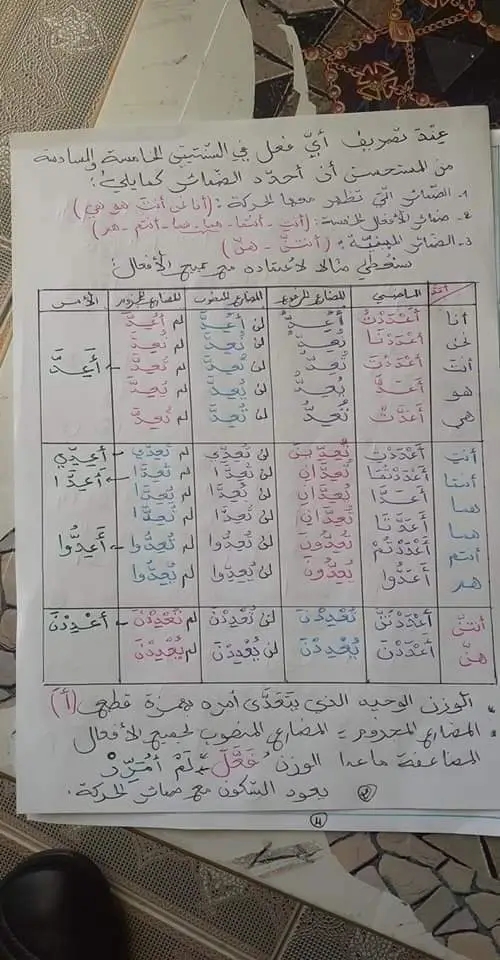 عند تصريف أيّ فعل في السّنتين الخامسة والسادسة
من المستحسن أن أحدد الضمائر كما يلي:
1ـ الضمائر الّتي تظهر معها الحركة: (أنا نحن أنت هو هي)
2ـ ضمائر الأفعال الخمسة: (أنتِ - أنتما - هما - هما - أنتم - هم)
3ـ الضمائر المبنيّة: (أنتنّ - هنّ)
سنعطي مثالا لاعتماده مع جميع الأفعال:
الماضي المضارع المرفوع المضارع المنصوب المضارع المجزوم الأمر
أنا أَعْدَدْتُ أُعِدُّ لن أُعِدَّ لم أُعِدَّ
نحن أَعْدَدْنَا نُعِدُّ لن نُعِدَّ لم نُعِدَّ
أنتَ أَعْدَدْتَ تُعِدُّ لن تُعِدَّ لم تُعِدَّ ← أَعِدَّ
هو أَعَدَّ يُعِدُّ لن يُعِدَّ لم يُعِدَّ
هي أَعَدَّتْ تُعِدُّ لن تُعِدَّ لم تُعِدَّ
أنتِ أَعْدَدْتِ تُعِدِّينَ لن تُعِدِّي لم تُعِدِّي ← أَعِدِّي
أنتما أَعْدَدْتُمَا تُعِدَّانِ لن تُعِدَّا لم تُعِدَّا ← أَعِدَّا
هما أَعَدَّا يُعِدَّانِ لن يُعِدَّا لم يُعِدَّا
هما أَعَدَّتَا تُعِدَّانِ لن تُعِدَّا لم تُعِدَّا
أنتم أَعْدَدْتُمْ تُعِدُّونَ لن تُعِدُّوا لم تُعِدُّوا ← أَعِدُّوا
هم أَعَدُّوا يُعِدُّونَ لن يُعِدُّوا لم يُعِدُّوا
أنتنّ أَعْدَدْتُنَّ تُعْدِدْنَ لن تُعْدِدْنَ لم تُعْدِدْنَ ← أَعْدِدْنَ
هنّ أَعْدَدْنَ يُعْدِدْنَ لن يُعْدِدْنَ لم يُعْدِدْنَ
* الوزن الوحيد الذي يبتدَئ أمره بهمزة قطع (أَ)
* المضارع المجزوم = المضارع المنصوب لجميع الأفعال
المضاعفة ماعدا الوزن فَعَّلَ ← لَمْ أُمَرِّدْ
يعود السّكون مع ضمائر الحركة.